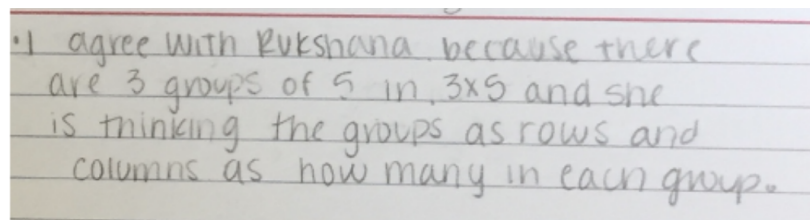 •I agree with Rukshana because there
are 3 groups of 5 in 3x5 and she
is thinking the groups as rows and
columns as how many in each group.